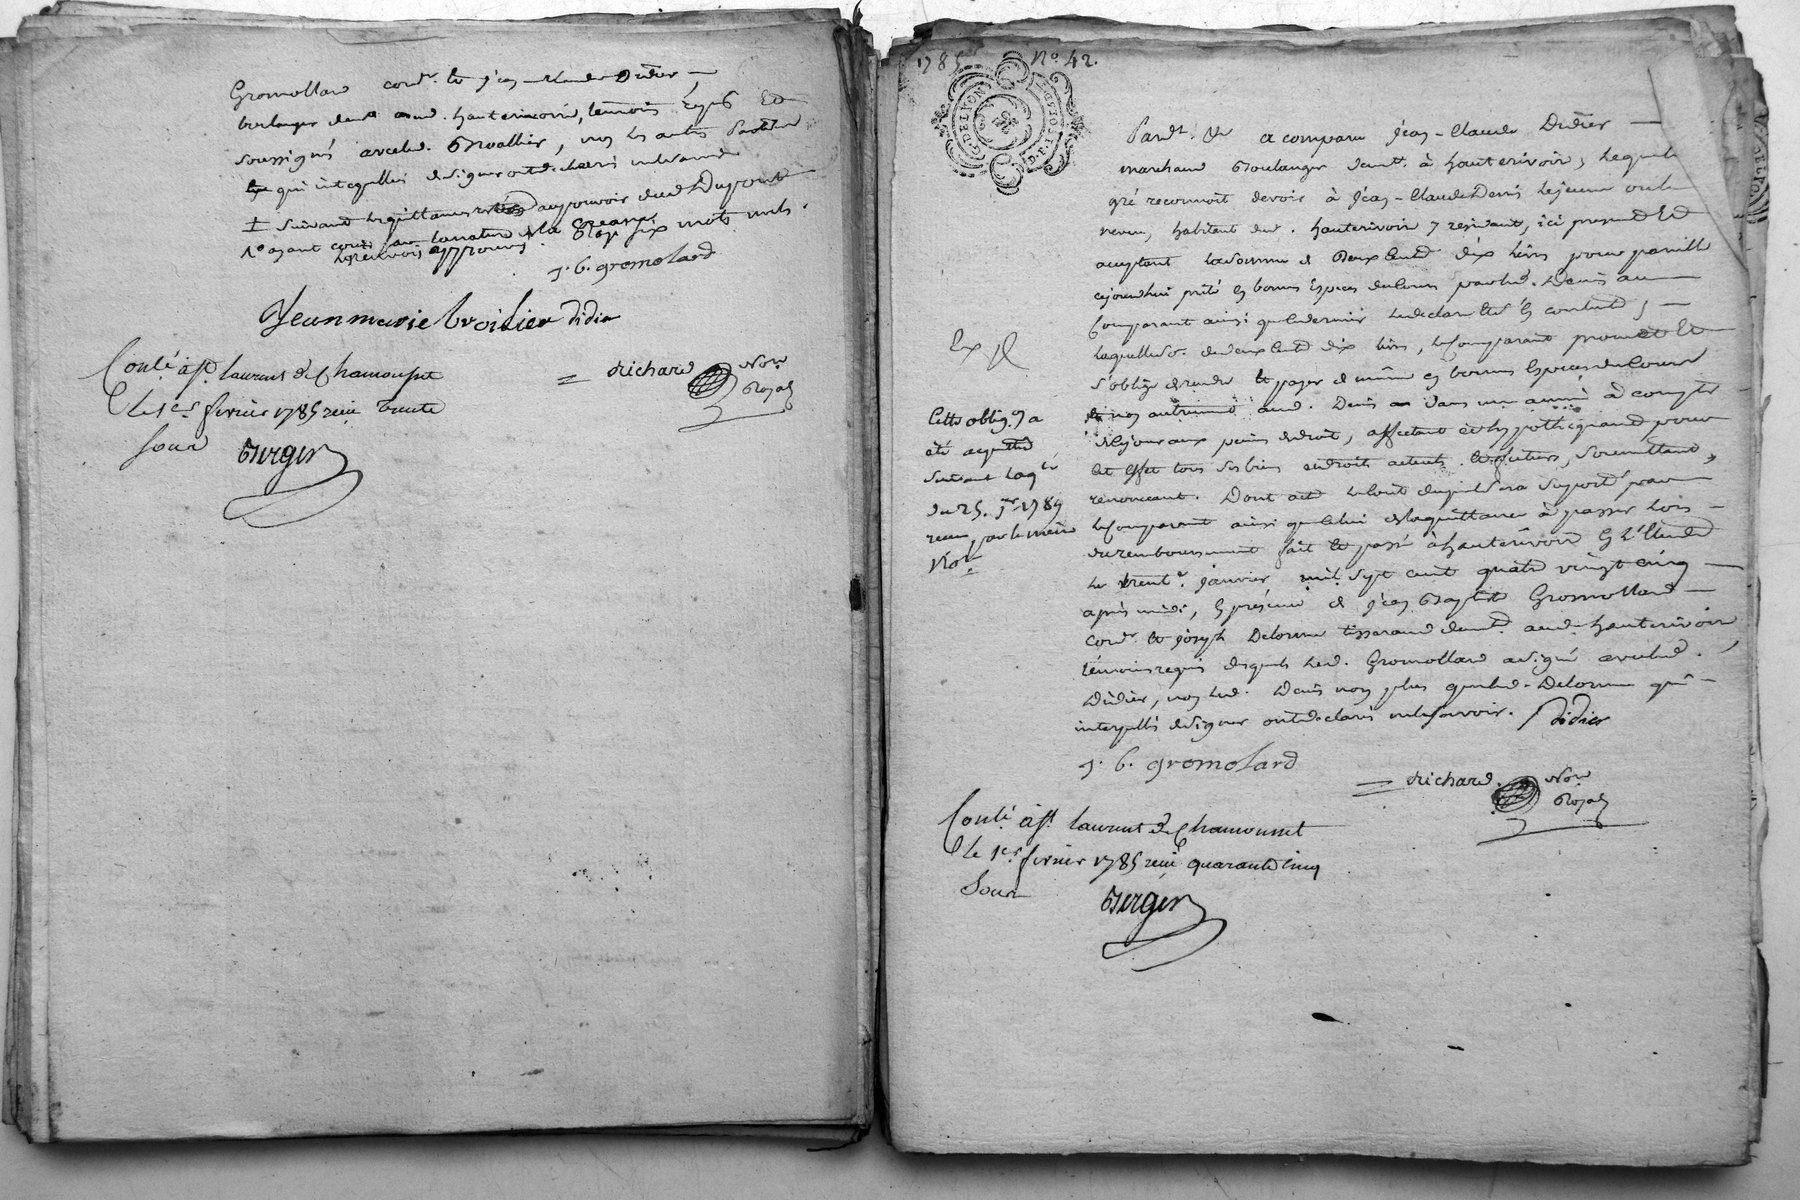 Gromollard cord.r et jean-claude Didier —
boulanger dem.t aud. hauterivoire, témoins requis et
soussignés avec led. Broallier, non les autres parties
qui interpellés de signer ont declaré ne le scavoir
suivant les quittances au pouvoir dud. Dupont
approuvé six mots nuls.
j. b. gromolard
Jean marie broilier didier
Conlé à st. laurent de Chamousset
Le 1er fevrier 1785 reçu trente
sour
Berger
= Richard No.re
Royal
1785 No. 42.
G. DE LYON
D.F. 10 S. D P.
Pard.t &c a comparu jean-Claude Didier —
marchand Boulanger dem.t à hauterivoire, lequel
gré reconnoit devoir à jean-Claude Denis lejeune
neveu, habitant dud. hauterivoire y residant, ici present et
acceptant la somme de deux cent dix livres pour pareille
cejourdhui prêté en bonnes espèces de cours par led. Denis au
Comparant ainsi que ce dernier le declare et s'en contente, —
laquelle so. de deux cent dix livres, le comparant promet et
s'oblige de rendre et payer de même en bonnes espèces de cours
et non autrement aud. Denis dans un année à compter
de ce jour aux peines de droit, affectant et hypothéquant pour
cet effet tous ses biens et droits actuels et futurs, soumettant,
renonceant. Dont acte le cout duquel sera suporté par
le Comparant ainsi que celui de la quittance à passer lors —
du remboursement fait et passé à hauterivoire en l'Etude
le trent.e janvier mil sept cent quatre vingt cinq —
après midi, en présence de jean Baptiste Gromollard —
cord.r et joseph Delorme tisserand dem.t aud. hauterivoire
témoins requis desquels led. Gromollard a signé avec led.
Didier, non led. Denis non plus que led. Delorme qui —
interpellés de signer ont declaré ne le scavoir. didier
j. b. gromolard
= Richard. No.re
Royal
Ex
Cette oblig.on a
été acquittée
suivant la q.ce
du 25. j.er 1789
reçue par le même
No.re
Conlé à st. laurent de Chamousset
Le 1er fevrier 1785 reçu quarante cinq
Sour
Berger